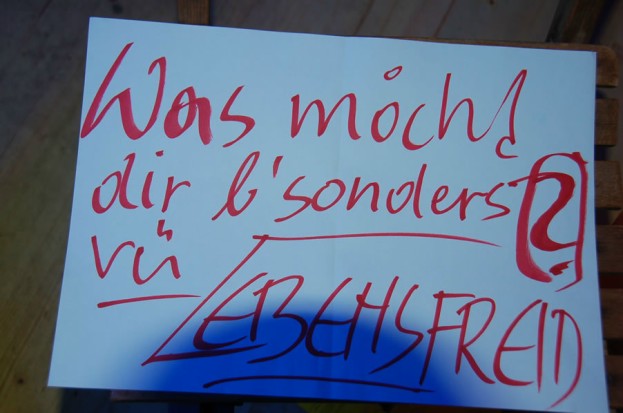 Was möcht
dir b'sonders?
vü
LEBENSFREID